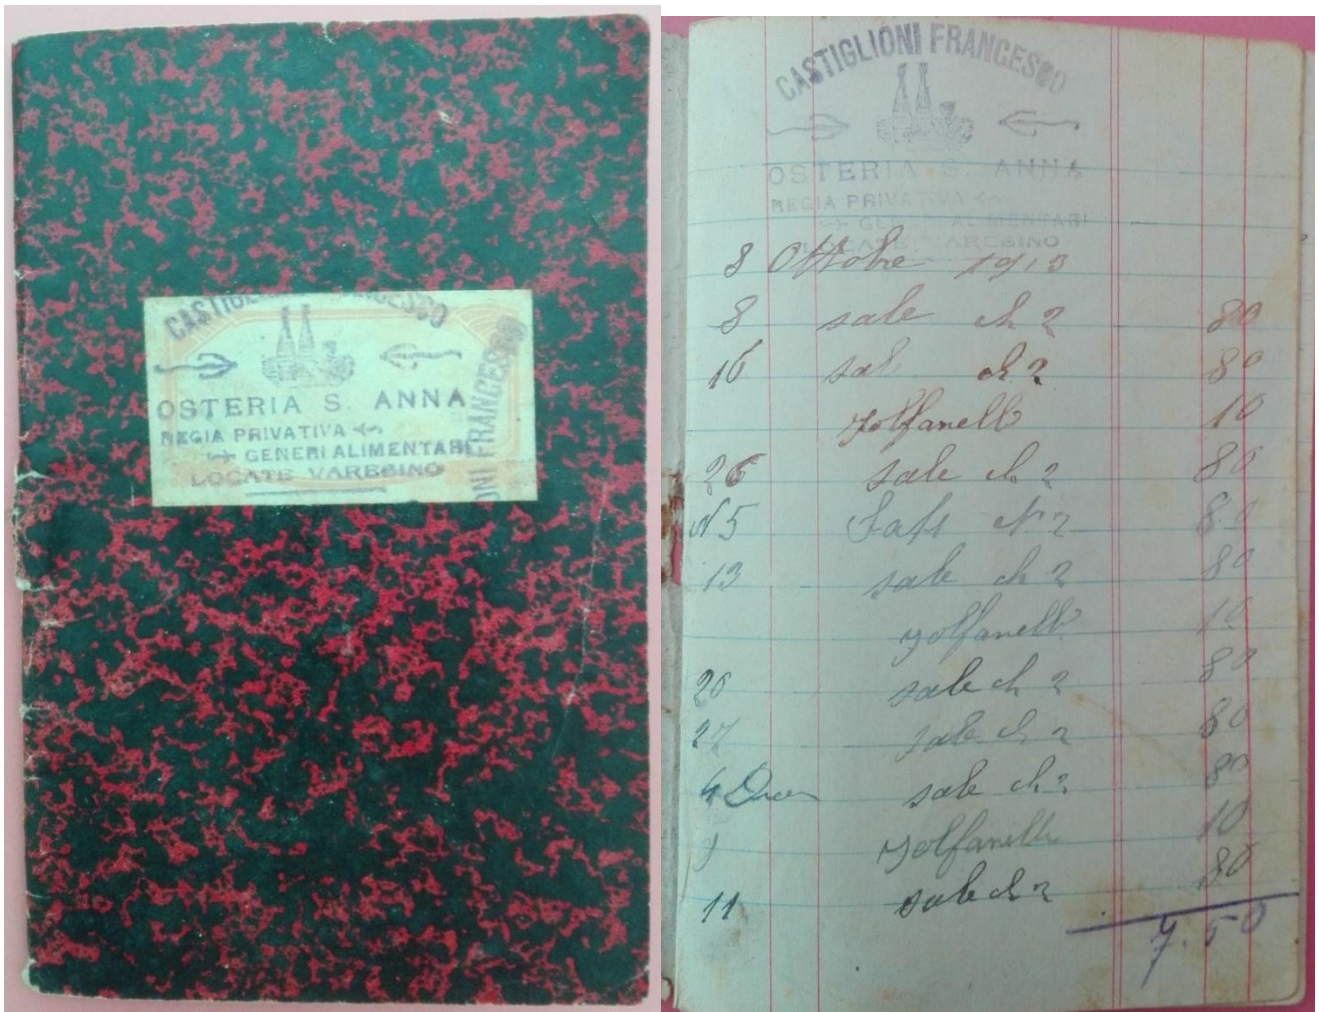 CASTIGLIONI FRANCESCO
OSTERIA S. ANNA
REGIA PRIVATIVA
GENERI ALIMENTARI
LOCATE VARESINO
ONI FRANCESCO
CASTIGLIONI FRANCESCO
OSTERIA S. ANNA
REGIA PRIVATIVA
GENERI ALIMENTARI
LOCATE VARESINO
8 Ottobre 1913
8 sale ch 2 80
16 sale ch 2 80
zolfanelli 10
26 sale ch 2 80
N 5 2 80
13 sale ch 2 80
zolfanelli 10
20 sale ch 2 80
27 sale ch 2 80
4 sale ch 2 80
zolfanelli 10
11 sale ch 2 80
7.50